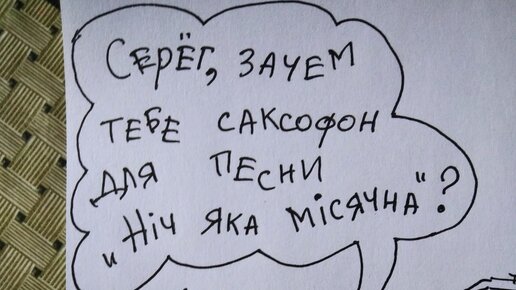 Серёг, зачем
тебе саксофон
для песни
„Ніч яка місячна"?